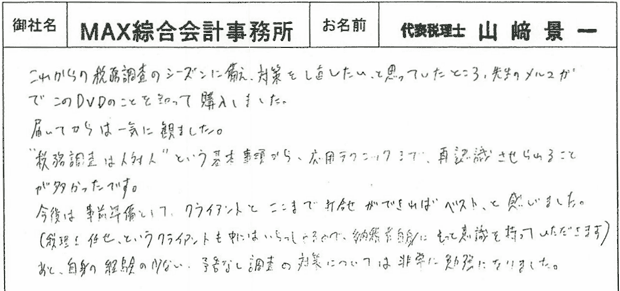 御社名 MAX綜合会計事務所 お名前 代表税理士 山﨑景一
これからの税務調査のシーズンに備え、対策をし直したい、と思っていたところ、先生のメルマガ
でこのDVDのことを知って購入しました。
届いてからは一気に観ました。
"税務調査は人対人"という基本事項から、応用テクニックまで、再認識させられること
が多かったです。
今後は事前準備として、クライアントとここまで打合ができればベスト、と感じました。
(税理士任せ、というクライアントも中にはいらっしゃるので、納税者自身にもっと意識を持っていただきます)
あと、自身の経験の少ない、予告なし調査の対策については非常に勉強になりました。